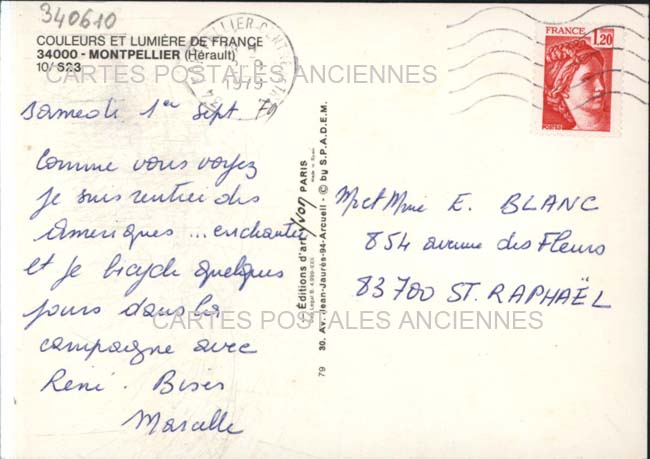 340610
COULEURS ET LUMIÈRE DE FRANCE
34000 - MONTPELLIER (Hérault)
10/ S23
CARTES POSTALES ANCIENNES
1979
FRANCE
1,20
POSTES
Samedi 1er Sept. 79
Comme vous voyez
je suis rentrée des
Amériques ... enchantée
et je bicycle quelques
jours dans la
campagne avec
René. Bises
Marcelle
Editions d'art Yvon PARIS
79 30. Av. Jean-Jaurès-94-Arcueil - © by S.P.A.D.E.M.
Mr et Mme E. BLANC
854 avenue des Fleurs
83700 ST. RAPHAËL
CARTES POSTALES ANCIENNES